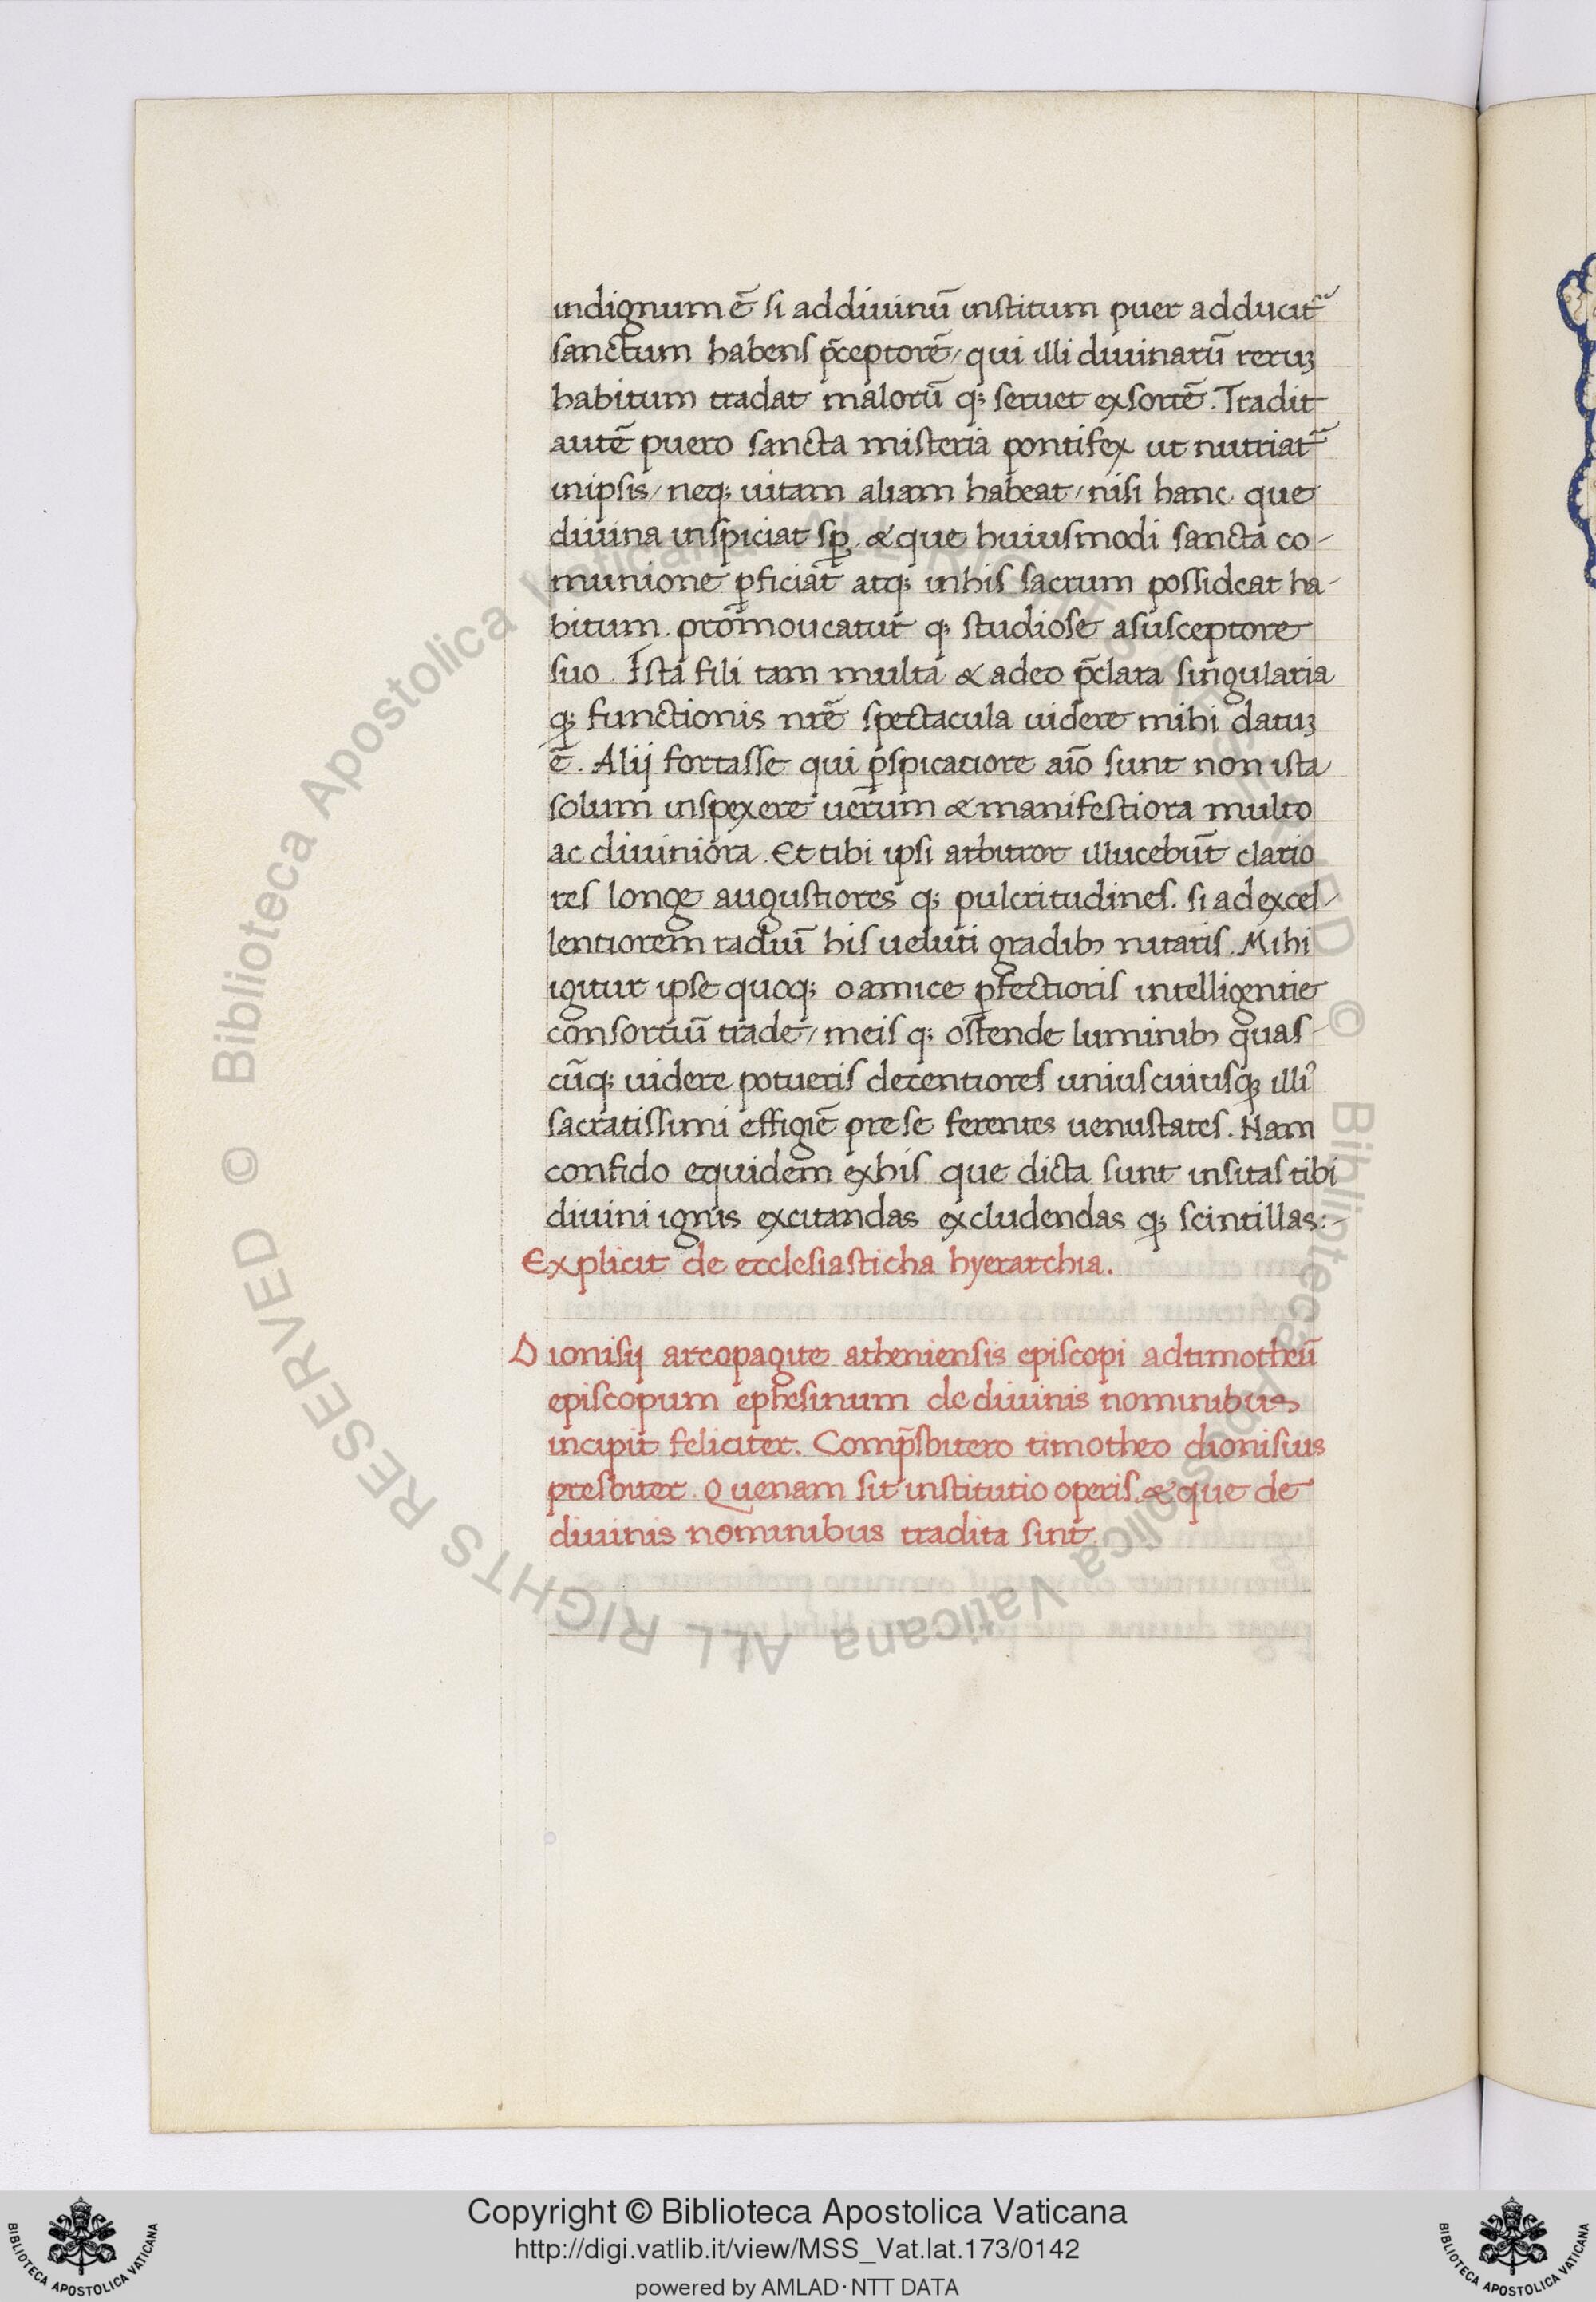 indignum ē si addiuinū institum puer adducit᷑
sanctum habens p̄ceptorē/ qui illi diuinarū reruꝫ
habitum tradat malorū qꝫ seruet exsortē. Tradit
autē puero sancta misteria pontifex ut nutriat᷑
inipsis/ neqꝫ uitam aliam habeat/ nisi hanc que
diuina inspiciat sꝑ. & que huiusmodi sancta co-
munione ꝑficiat᷑ atqꝫ inhis sacrum possideat ha-
bitum. promoueatur qꝫ studiose asusceptore
suo. Ista fili tam multa & adeo p̄clara singularia
qꝫ functionis nr̄ē spectacula uidere mihi datuꝫ
ē. Alij fortasse qui ꝑspicatiore aīo sunt non ista
solum inspexere uerum & manifestiora multo
ac diuiniora. Et tibi ipsi arbitror illucebūt clario
res longe augustiores qꝫ pulcritudines. si ad excel-
lentiorem radiū his ueluti gradibꝫ nitaris. Mihi
igitur ipse quoqꝫ o amice ꝑfectioris intelligentie
consortiū trade/ meis qꝫ ostende luminibꝫ quas-
cūqꝫ uidere potueris decentiores uniuscuiusqꝫ illiꝰ
sacratissimi effigiē pre se ferentes uenustates. Nam
confido equidem exhis que dicta sunt insitas tibi
diuini ignis excitandas excludendas qꝫ scintillas:-
Explicit de ecclesiasticha hyerarchia.
Dionisij areopagite atheniensis episcopi adtimotheū
episcopum ephesinum de diuinis nominibus
incipit feliciter. Comp̄sbitero timotheo dionisius
presbiter. Quenam sit institutio operis. & que de
diuinis nominibus tradita sint.
© Biblioteca Apostolica Vaticana ALL RIGHTS RESERVED
© Biblioteca Apostolica Vaticana ALL RIGHTS RESERVED
Copyright © Biblioteca Apostolica Vaticana
http://digi.vatlib.it/view/MSS_Vat.lat.173/0142
powered by AMLAD·NTT DATA
BIBLIOTECA APOSTOLICA VATICANA
BIBLIOTECA APOSTOLICA VATICANA